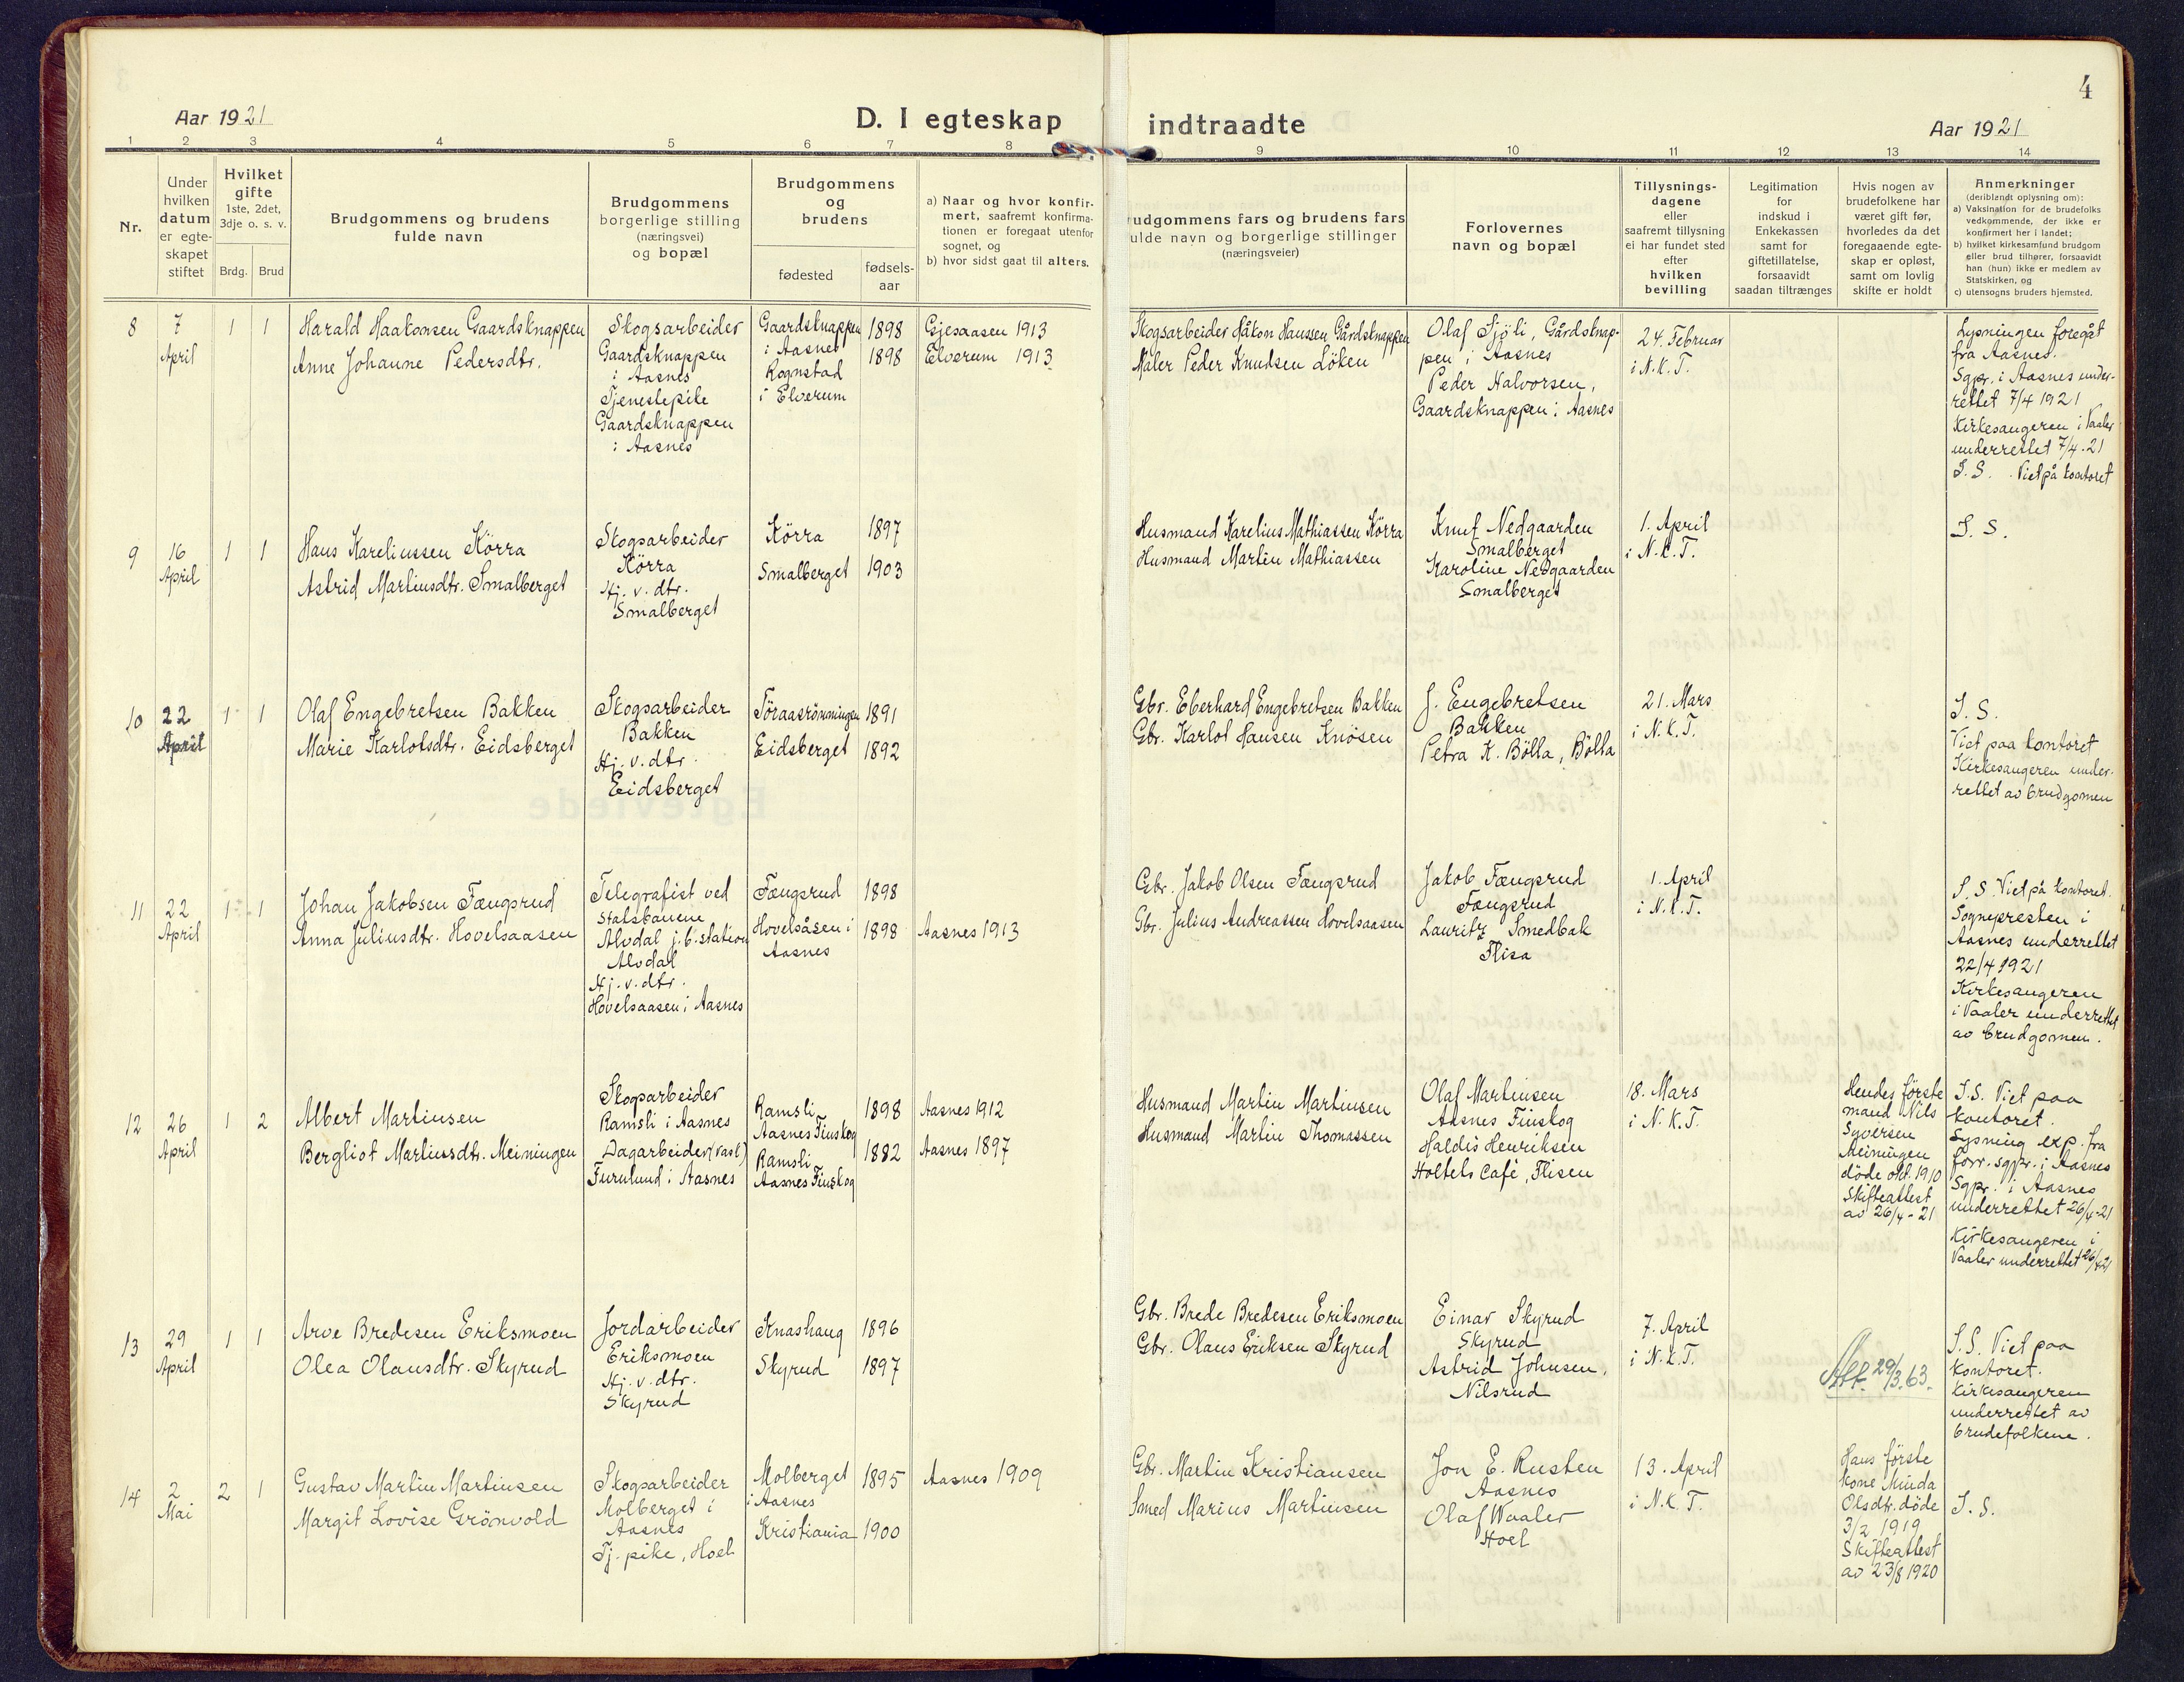 4
Aar 1921
D. I egteskap
indtraadte
Aar 1921
1 2 3 4 5 6 7 8 9 10 11 12 13 14
Nr.
Under
hvilken
datum
er egte-
skapet
stiftet
Hvilket
gifte
1ste, 2det,
3dje o. s. v.
Brdg.
Brud
Brudgommens og brudens
fulde navn
Brudgommens
borgerlige stilling
(næringsvei)
og bopæl
Brudgommens
og
brudens
fødested
fødsels-
aar
a) Naar og hvor konfir-
mert, saafremt konfirma-
tionen er foregaat utenfor
sognet, og
b) hvor sidst gaat til alters.
udgommens fars og brudens fars
ulde navn og borgerlige stillinger
(næringsveier)
Forlovernes
navn og bopæl
Tillysnings-
dagene
eller
saafremt tillysning
ei har fundet sted
efter
hvilken
bevilling
Legitimation
for
indskud i
Enkekassen
samt for
giftetillatelse,
forsaavidt
saadan tiltrænges
Hvis nogen av
brudefolkene har
været gift før,
hvorledes da det
foregaaende egte-
skap er opløst,
samt om lovlig
skifte er holdt
Anmerkninger
(deriblandt oplysning om):
a) Vaksination for de brudefolks
vedkommende, der ikke er
konfirmert her i landet;
b) hvilket kirkesamfund brudgom
eller brud tilhører, forsaavidt
han (hun) ikke er medlem av
Statskirken, og
c) utensogns bruders hjemsted.
8
7
April
1
1
Harald Haakonsen Gaardsknappen
Anne Johanne Pedersdtr.
Skogsarbeider
Gaardsknappen
i Aasnes
Tjenestepike
Gaardsknappen
i Aasnes
Gaardsknappen
i Aasnes
Kognstad
i Elverum
1898
1898
Gjesaasen 1913
Elverum 1913
Skogsarbeider Håkon Hanssen Gårdsknappen
Maler Peder Knudsen Löken
Olaf Sjöli, Gårdsknap-
pen i Aasnes
Peder Halvorsen,
Gaardsknappen i Aasnes
24. Februar
i N.K.T.
Lysningen foregåt
fra Aasnes.
Sgpr. i Aasnes under-
rettet 7/4 1921
Kirkesangeren i Vaaler
underrettet 7/4-21
S. S. Viet på kontoret
9
16
April
1
1
Hans Kareliussen Körra
Astrid Martinsdtr. Smalberget
Skogsarbeider
Körra
Hj. v. dtr.
Smalberget
Körra
Smalberget
1897
1903
Husmand Karelius Mathiassen Körra
Husmand Martin Mathiassen
Knut Nedgaarden
Smalberget
Karoline Nedgaarden
Smalberget
1. April
i N.K.T.
S. S.
10
22
April
1
1
Olaf Engebretsen Bakken
Marie Karlotsdtr. Eidsberget
Skogsarbeider
Bakken
Hj. v. dtr.
Eidsberget
Töraasrömningen
Eidsberget
1891
1892
Gbr. Eberhard Engebretsen Bakken
Gbr. Karlot Hansen Knösen
J. Engebretsen
Bakken
Petra K. Bölla, Bölla
21. Mars
i N.K.T.
S. S.
Viet paa kontoret
Kirkesangeren under-
rettet av brudgomen
11
22
April
1
1
Johan Jakobsen Fængsrud
Anna Juliusdtr. Hovelsaasen
Telegrafist ved
Statsbanene
Alvdal j.b.station
Alvdal
Hj. v. dtr.
Hovelsaasen i Aasnes
Fængsrud
Hovelsåsen i
Aasnes
1898
1898
Aasnes 1913
Gbr. Jakob Olsen Fængsrud
Gbr. Julius Andreassen Hovelsaasen
Jakob Fængsrud
Fængsrud
Lauritz Smedbak
Flisa
1. April
i N.K.T.
S. S. Viet på kontoret.
Sognepresten i
Aasnes underrettet
22/4 1921
Kirkesangeren
i Vaaler underrettet
av brudgomen.
12
26
April
1
2
Albert Martinsen
Bergliot Martinsdtr. Meiningen
Skogsarbeider
Ramsli i Aasnes
Dagarbeider(vask)
Furulund i Aasnes
Ramsli
Aasnes Finskog
Ramsli
Aasnes Finskog
1898
1882
Aasnes 1912
Aasnes 1897
Husmand Martin Martinsen
Husmand Martin Thomassen
Olaf Martinsen
Aasnes Finskog
Haldis Henriksen
Holtets Café, Flisen
18. Mars
i N.K.T.
Hendes første
mand Nils
Syversen
Meiningen
döde okt. 1910
Skifteattest
av 26/4-21
S. S. Viet paa
kontoret.
Lysning exp. fra
forr. sgpr. i Aasnes
Sgpr. i Aasnes
underrettet 26/4-21
Kirkesangeren i
Vaaler underrettet 26/4 21
13
29
April
1
1
Arve Bredesen Eriksmoen
Olea Olausdtr. Skyrud
Jordarbeider
Eriksmoen
Hj. v. dtr.
Skyrud
Knashaug
Skyrud
1896
1897
Gbr. Brede Bredesen Eriksmoen
Gbr. Olaus Eriksen Skyrud
Einar Skyrud
Skyrud
Astrid Johnsen,
Nilsrud
7. April
i N.K.T.
Att. 29/3.63.
S. S. Viet paa
kontoret.
Kirkesangeren
underrettet av
brudefolkene.
14
2
Mai
2
1
Gustav Martin Martinsen
Margit Lovise Grönvold
Skogsarbeider
Molberget i
Aasnes
Tj. pike, Hoel
Molberget
i Aasnes
Kristiania
1895
1900
Aasnes 1909
Gbr. Martin Kristiansen
Smed Marius Martinsen
Jon E. Rusten
Aasnes
Olaf Waaler
Hoel
13. April
i N.K.T.
Hans første
kone Minda
Olsdtr. döde
3/2 1919
Skifteattest
av 23/8 1920
S. S.